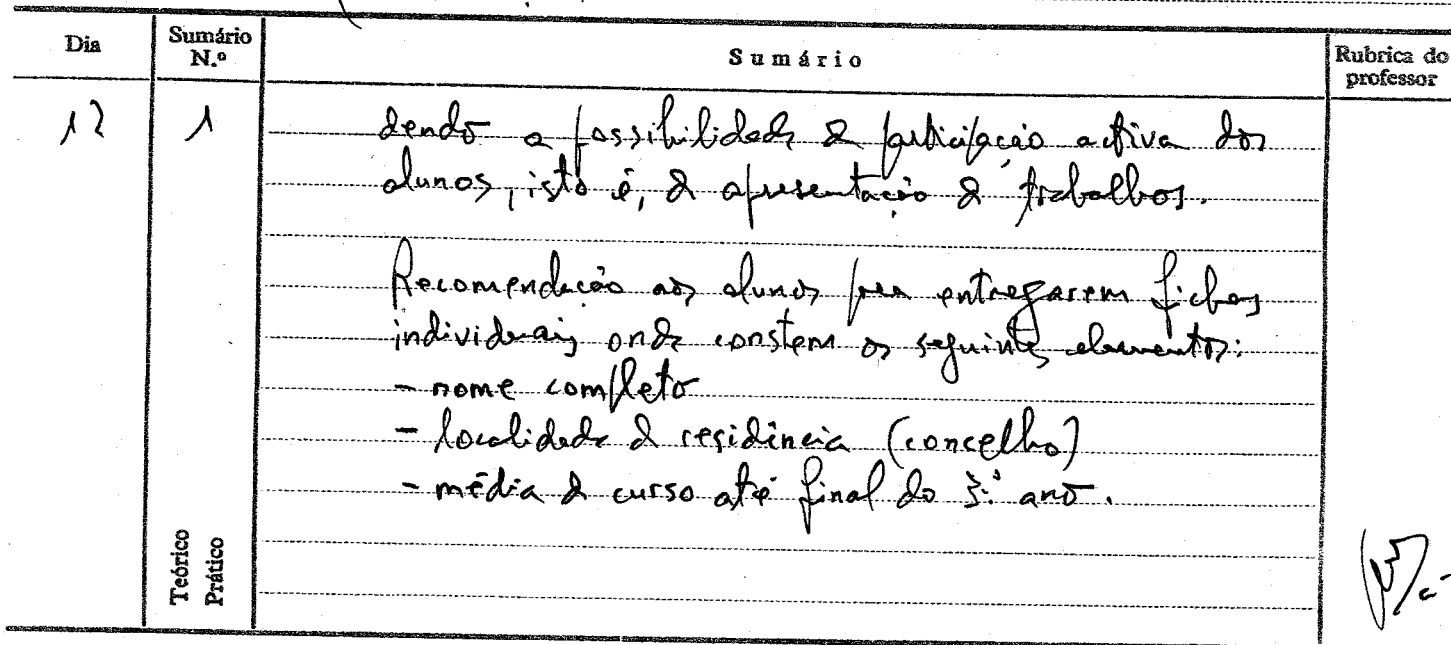 Dia Sumário N.º Sumário Rubrica do professor
12 1 dendo a possibilidade de participação activa dos
alunos, isto é, de apresentação de trabalhos.
Recomendação aos alunos para entregarem fichas
individuais onde constem os seguintes elementos:
- nome completo
- localidade de residência (concelho)
- média de curso até final do 3.º ano.
Teórico
Prático